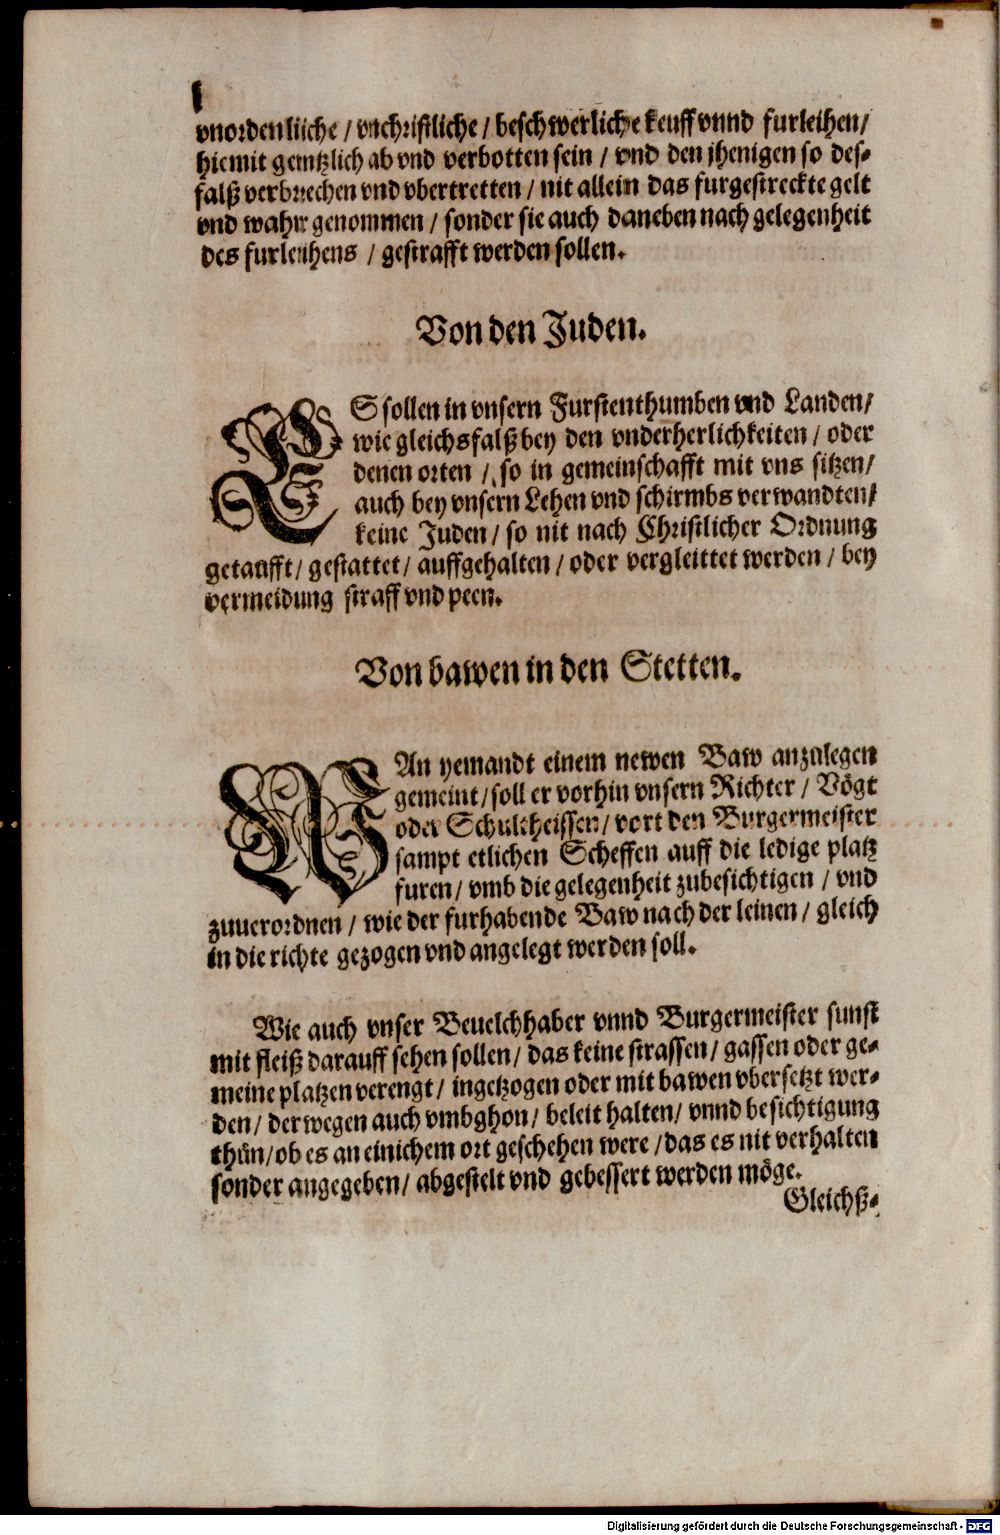 vnordenliche / vnchristliche / beschwerliche keuff vnnd furleihen /
hiemit gentzlich ab vnd verbotten sein / vnd den jhenigen so des⸗
falß verbrechen vnd vbertretten / nit allein das furgestreckte gelt
vnd wahr genommen / sonder sie auch daneben nach gelegenheit
des furleihens / gestrafft werden sollen.
Von den Juden.
ES sollen in vnsern Furstenthumben vnd Landen /
wie gleichsfalß bey den vnderherlichkeiten / oder
denen orten / so in gemeinschafft mit vns sitzen /
auch bey vnsern Lehen vnd schirmbs verwandten /
keine Juden / so nit nach Christlicher Ordnung
getaufft / gestattet / auffgehalten / oder vergleittet werden / bey
vermeidung straff vnd peen.
Von bawen in den Stetten.
WAn yemandt einem newen Baw anzulegen
gemeint / soll er vorhin vnsern Richter / Vögt
oder Schultheissen / vort den Burgermeister
sampt etlichen Scheffen auff die ledige platz
furen / vmb die gelegenheit zubesichtigen / vnd
zuuerordnen / wie der furhabende Baw nach der leinen / gleich
in die richte gezogen vnd angelegt werden soll.
Wie auch vnser Beuelchhaber vnnd Burgermeister sunst
mit fleiß darauff sehen sollen / das keine strassen / gassen oder ge⸗
meine platzen verengt / ingetzogen oder mit bawen vbersetzt wer⸗
den / derwegen auch vmbghon / beleit halten / vnnd besichtigung
thün / ob es an einichem ort geschehen were / das es nit verhalten
sonder angegeben / abgestelt vnd gebessert werden möge.
Gleichß⸗
Digitalisierung gefördert durch die Deutsche Forschungsgemeinschaft - DFG